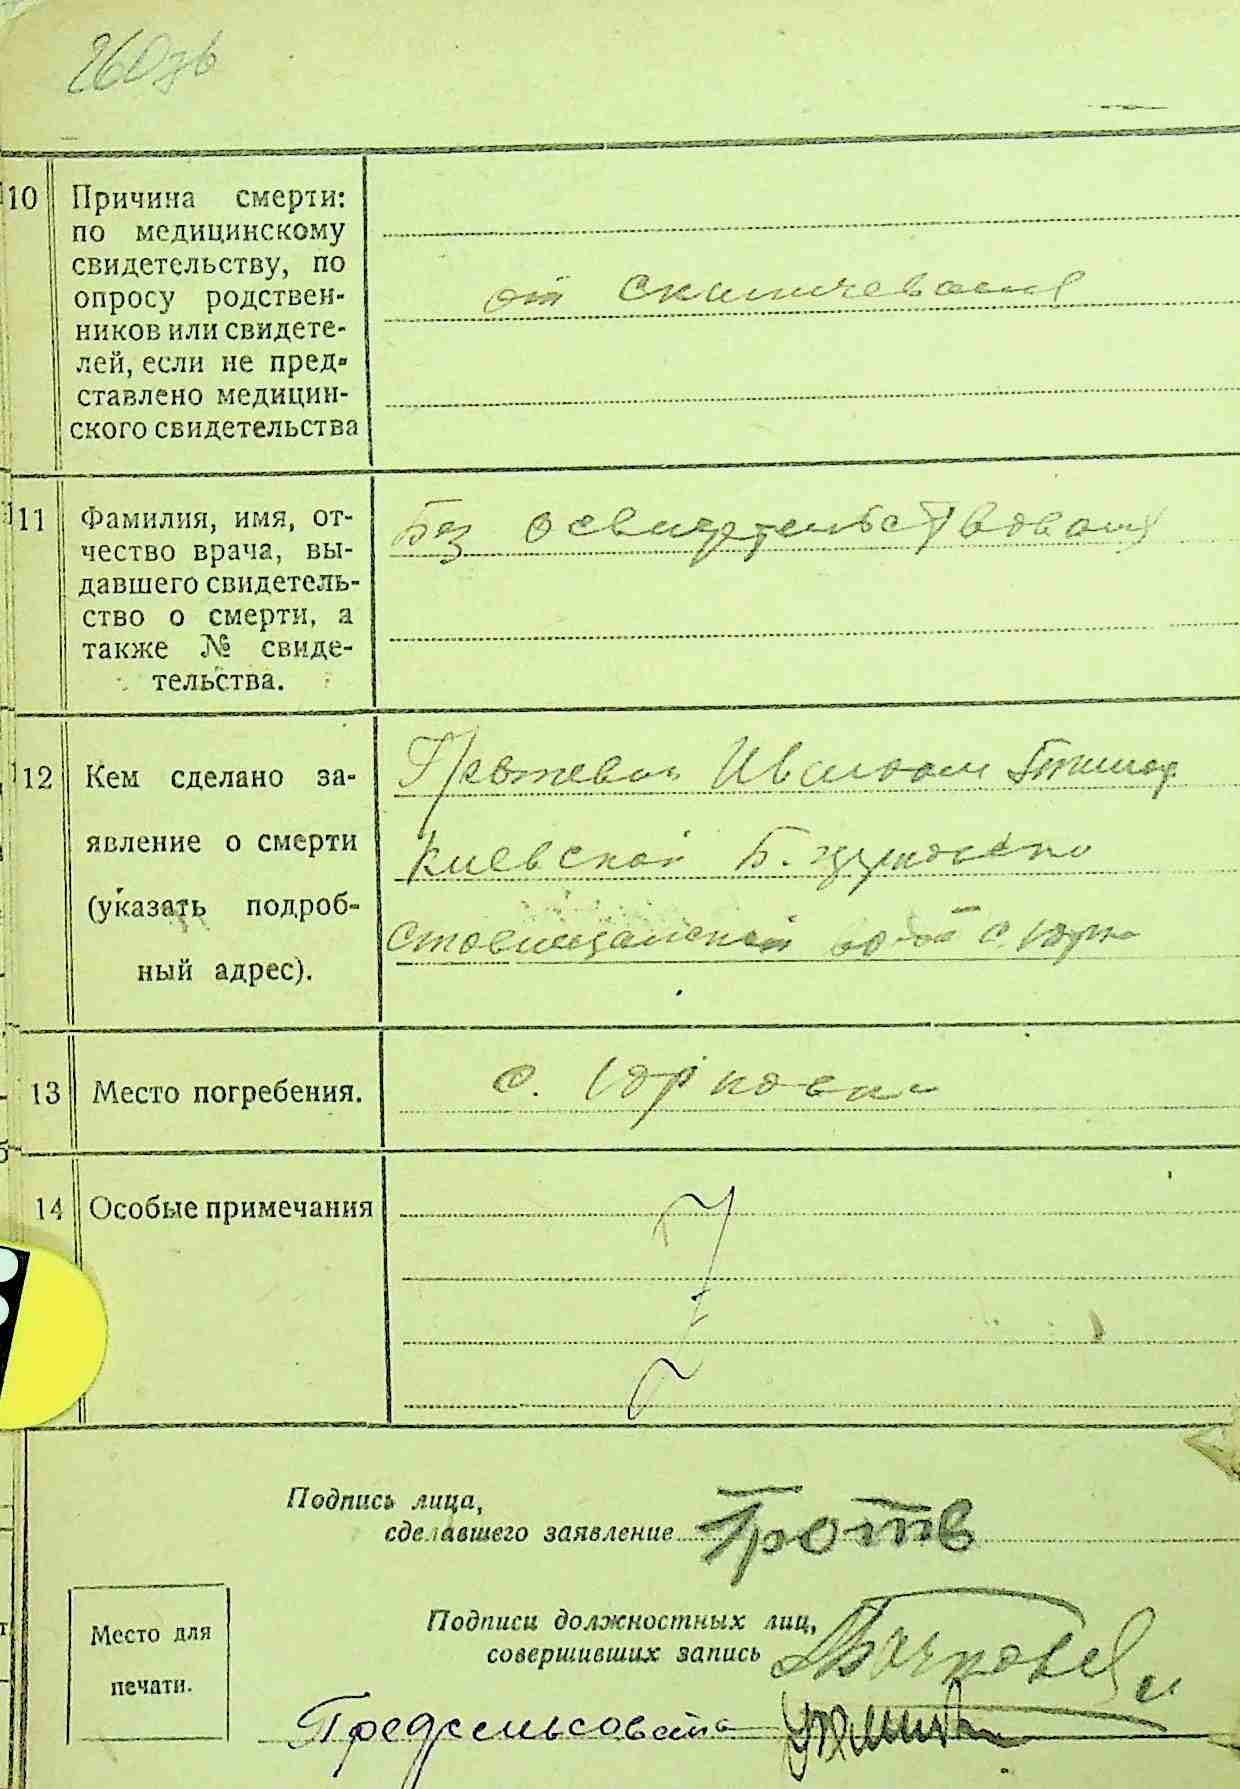 10 Причина смерти:
по медицинскому
свидетельству, по
опросу родствен-
ников или свидете-
лей, если не пред-
ставлено медицин-
ского свидетельства
от
11 Фамилия, имя, от-
чество врача, вы-
давшего свидетель-
ство о смерти, а
также № свиде-
тельства.
Без освидетельствования
12 Кем сделано за-
явление о смерти
(указать подроб-
ный адрес).
Иваном
Киевской Б.
с. Юрк
13 Место погребения.
с. Юрковка
14 Особые примечания
Подпись лица,
сделавшего заявление
Подписи должностных лиц,
совершивших запись
Место для
печати.
Предсельсовета